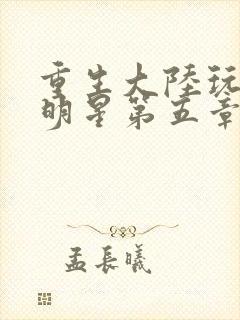 重生大陸玩
明星第五章
孟長曦